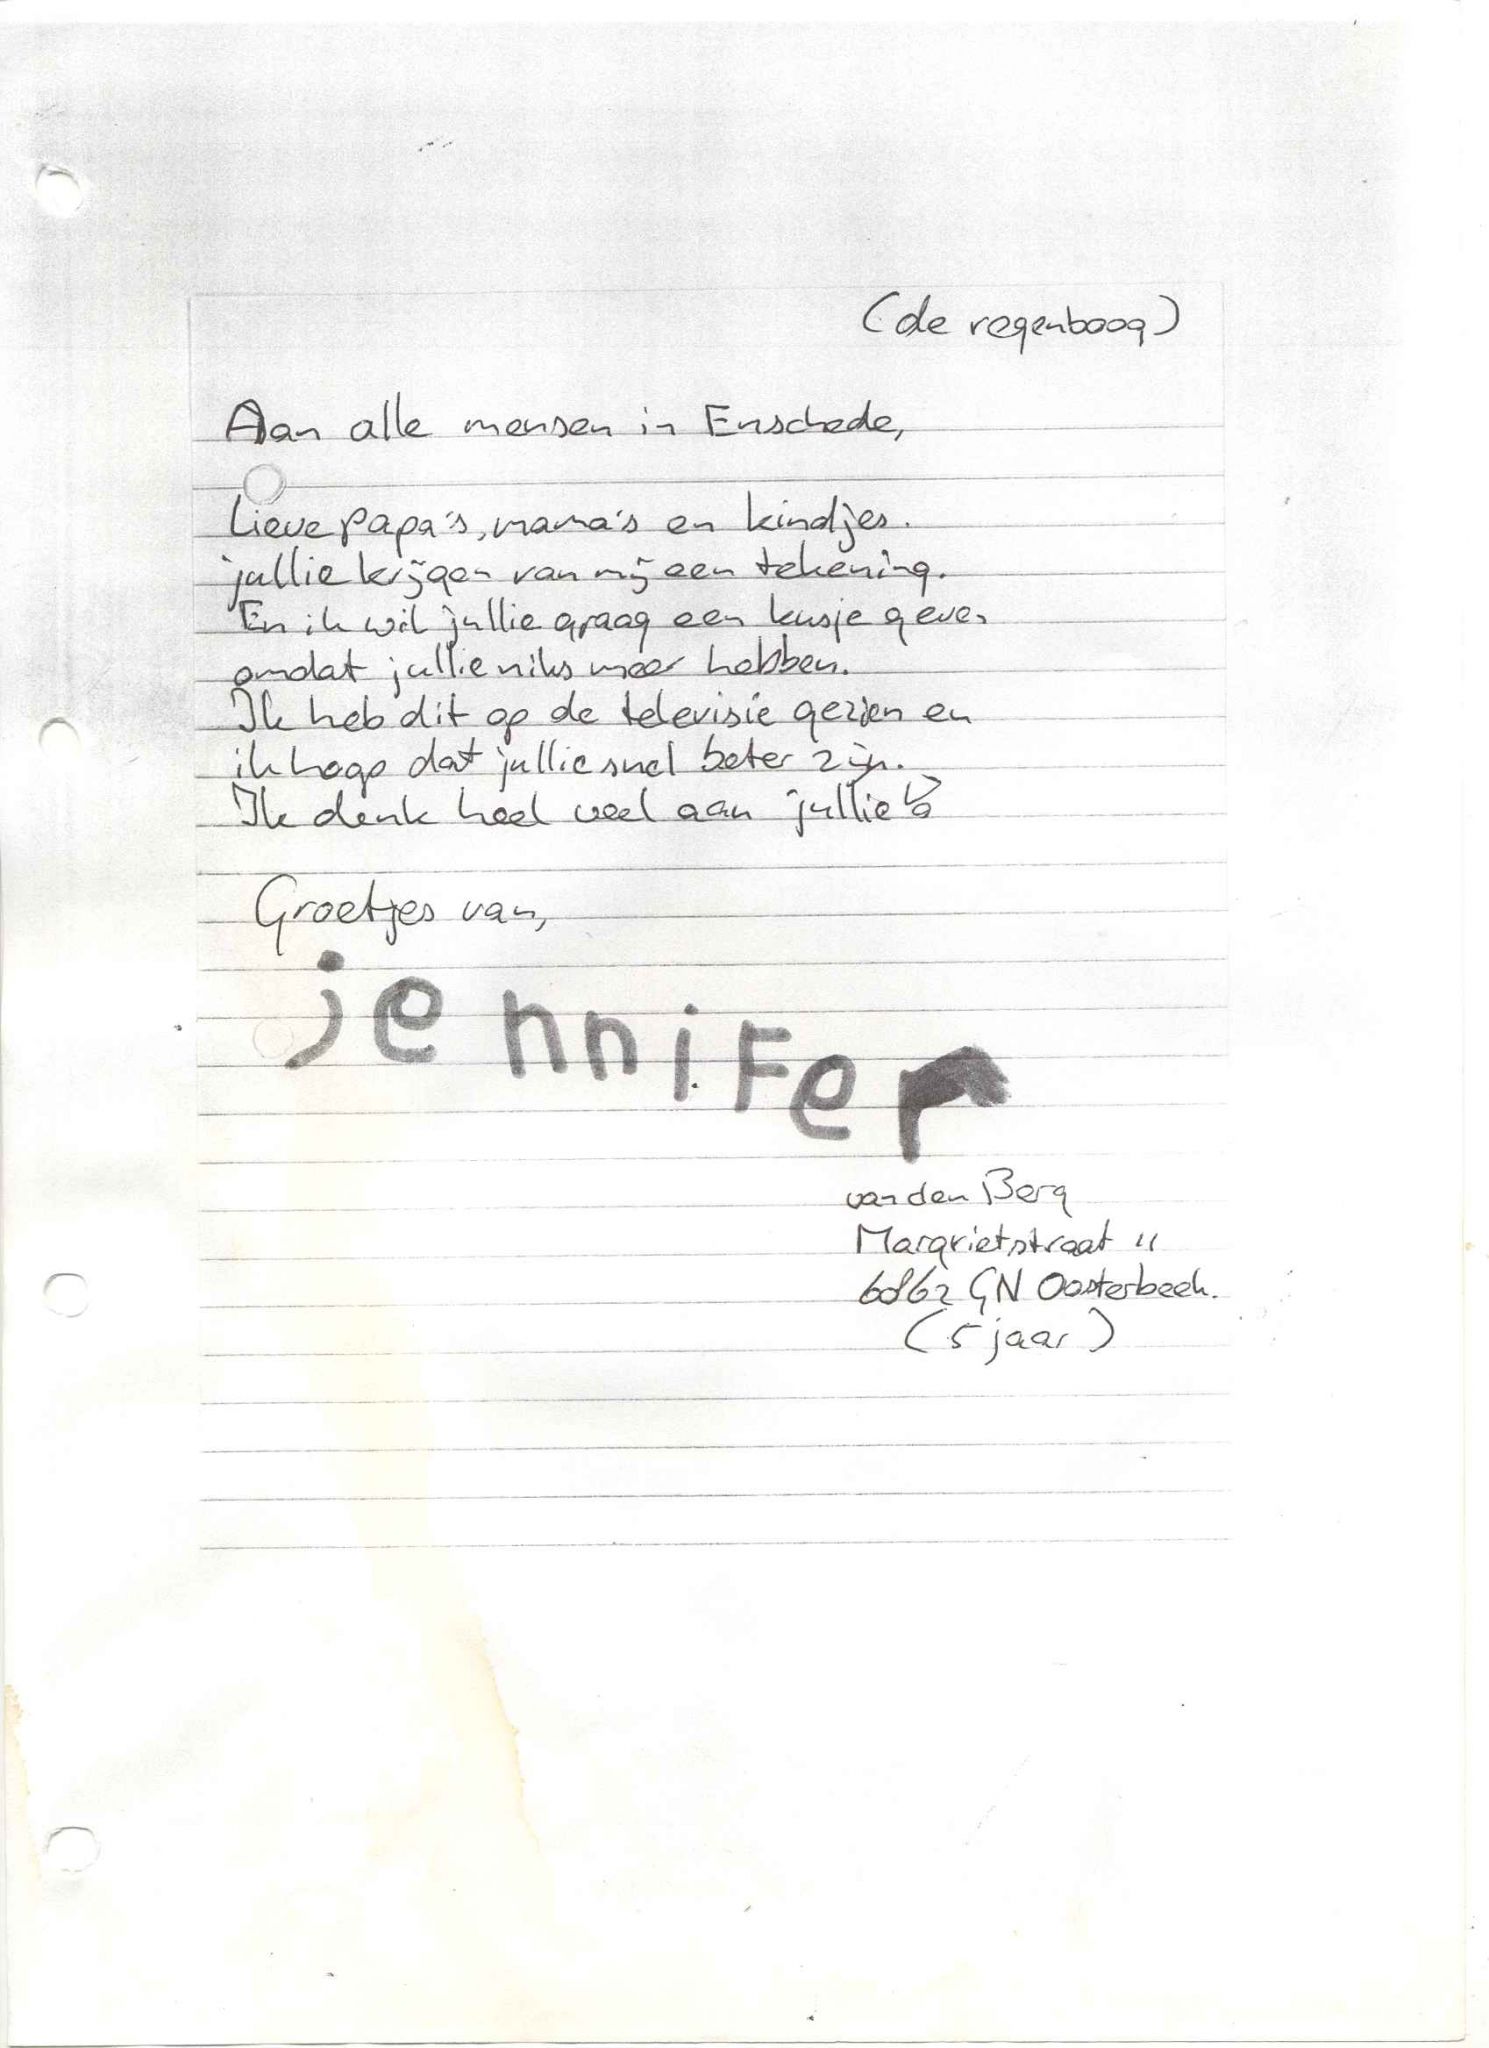 (de regenboog)
Aan alle mensen in Enschede,
Lieve papa's, mama's en kindjes.
jullie krijgen van mij een tekening.
En ik wil jullie graag een kusje geven
omdat jullie niks meer hebben.
Ik heb dit op de televisie gezien en
ik hoop dat jullie snel beter zijn.
Ik denk heel veel aan jullie
Groetjes van,
jenniFer
van den Berg
Margrietstraat 11
6862 GN Oosterbeek.
(5 jaar)